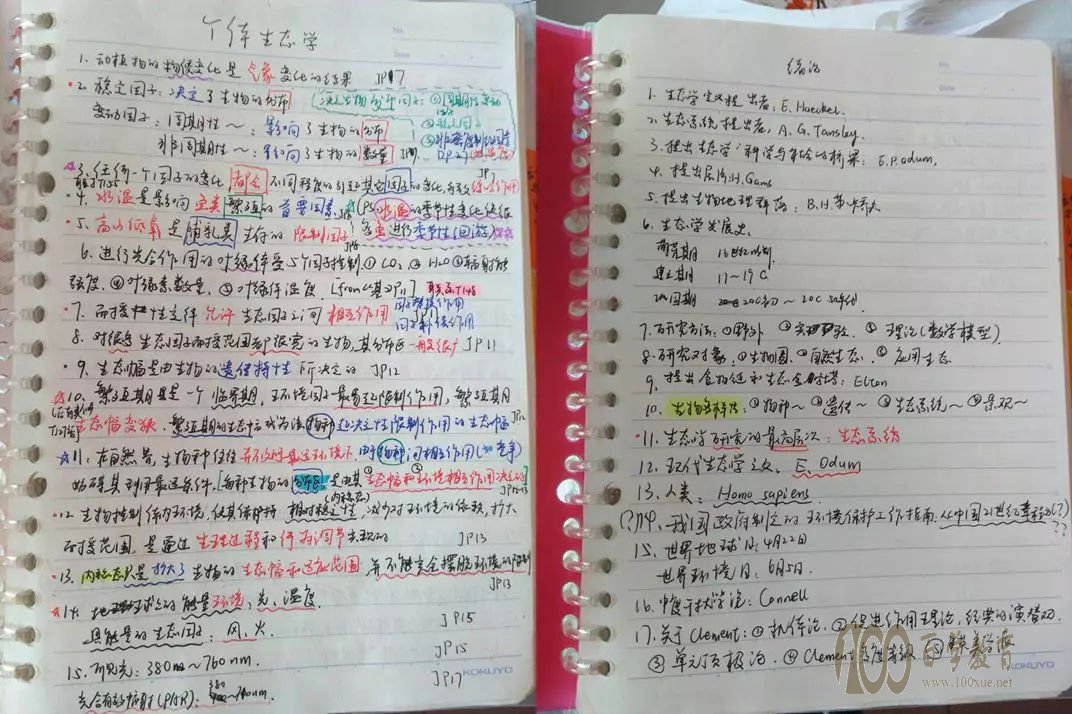 个体生态学
No.
Date
1. 动植物的物候变化是气象变化的结果 JP17
2. 稳定因子：决定了生物的分布
变动因子：周期性～：影响了生物的分布
非周期性～：影响了生物的数量
3. 任何一个因子的变化都会不同程度的引起其它因子的变化
4. 水温是影响鱼类繁殖的首要因素 (PS水温的季节性变化
5. 高山低氧是哺乳类生存的限制因子 鱼进行季节性回游)
6. 进行光合作用的叶绿体受5个因子控制：① CO₂ ② H₂O ③ 辐射能
强度 ④ 叶绿素数量 ⑤ 叶绿体温度
7. 耐受性定律允许生态因子之间相互作用
8. 对很多生态因子耐受范围都很宽的生物，其分布区一般很广 JP11
9. 生态幅是由生物的遗传特性所决定的 JP12
10. 繁殖期是一个临界期，环境因子最易起限制作用，繁殖期
生态幅变狭，繁殖期的生态幅成为该物种起决定性限制作用的生态幅
11. 在自然界，生物种往往并不处于最适环境下，由于物种间相互作用(如竞争)
妨碍其利用最适条件，[每种生物的分布区是由其①生态幅和②环境相互作用决定的]
12. 生物控制体内环境，使其保持相对稳定性(内稳态)，减少对环境的依赖，扩大
耐受范围，是通过生理过程和行为调节实现的 JP13
13. 内稳态只是扩大了生物的生态幅和适应范围，并不能完全摆脱环境的限制
JP13
14. 地球上的能量环境：光、温度
具能量的生态因子：风、火 JP15
15. 可见光：380nm～760nm JP15
光合有效辐射(PAR)：380～710nm JP17
KOKUYO
No.
Date
绪论
1. 生态学定义提出者：E. Haeckel.
2. 生态系统提出者：A. G. Tansley.
3. 提出生态学：科学与社会的桥梁：E.P.odum,
4. 提出层片：H. Gams
5. 提出生物地理群落：B.H.苏卡乔夫
6. 生态学发展史.
萌芽期 16世纪
建立期 17～19 C
巩固期 20C初～20C 30年代
7. 研究方法：① 野外 ② 实验 ③ 理论(数学模型).
8. 研究对象：① 生物圈 ② 自然生态 ③ 应用生态
9. 提出食物链和生态金字塔：Elton
10. 生物多样性：① 物种～ ② 遗传～ ③ 生态系统～ ④ 景观～
11. 生态学研究的最高层次：生态系统
12. 现代生态学之父 E. Odum
13. 人类：Homo sapiens
(?)14. 我国政府制定的环境保护工作指南《中国21世纪议程》(?)
15. 世界地球日：4月22日
世界环境日：6月5日
16. 中度干扰学说：Connell
17. 关于Clement：① 机体论 ② 促进作用理论，经典的演替观
③ 单元顶极论 ④ Clement
KOKUYO
100百学教育
www.100xue.net